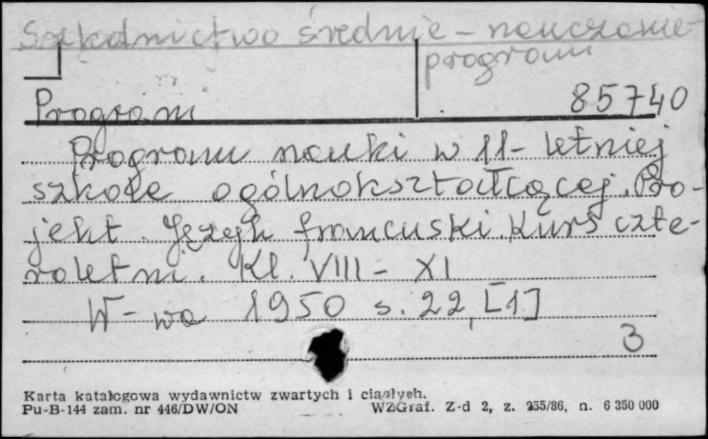 Szkolnictwo średnie - nauczanie -
program
Program 85740
Program nauki w 11-letniej
szkole ogólnokształcącej. Pro-
jekt. Język francuski. Kurs czte-
roletni. Kl. VIII - XI
W-wa 1950 s. 22, [1]
3
Karta katalogowa wydawnictw zwartych i ciągłych.
Pu-B-144 zam. nr 446/DW/ON WZGraf. Z-d 2, z. 255/86, n. 6 350 000